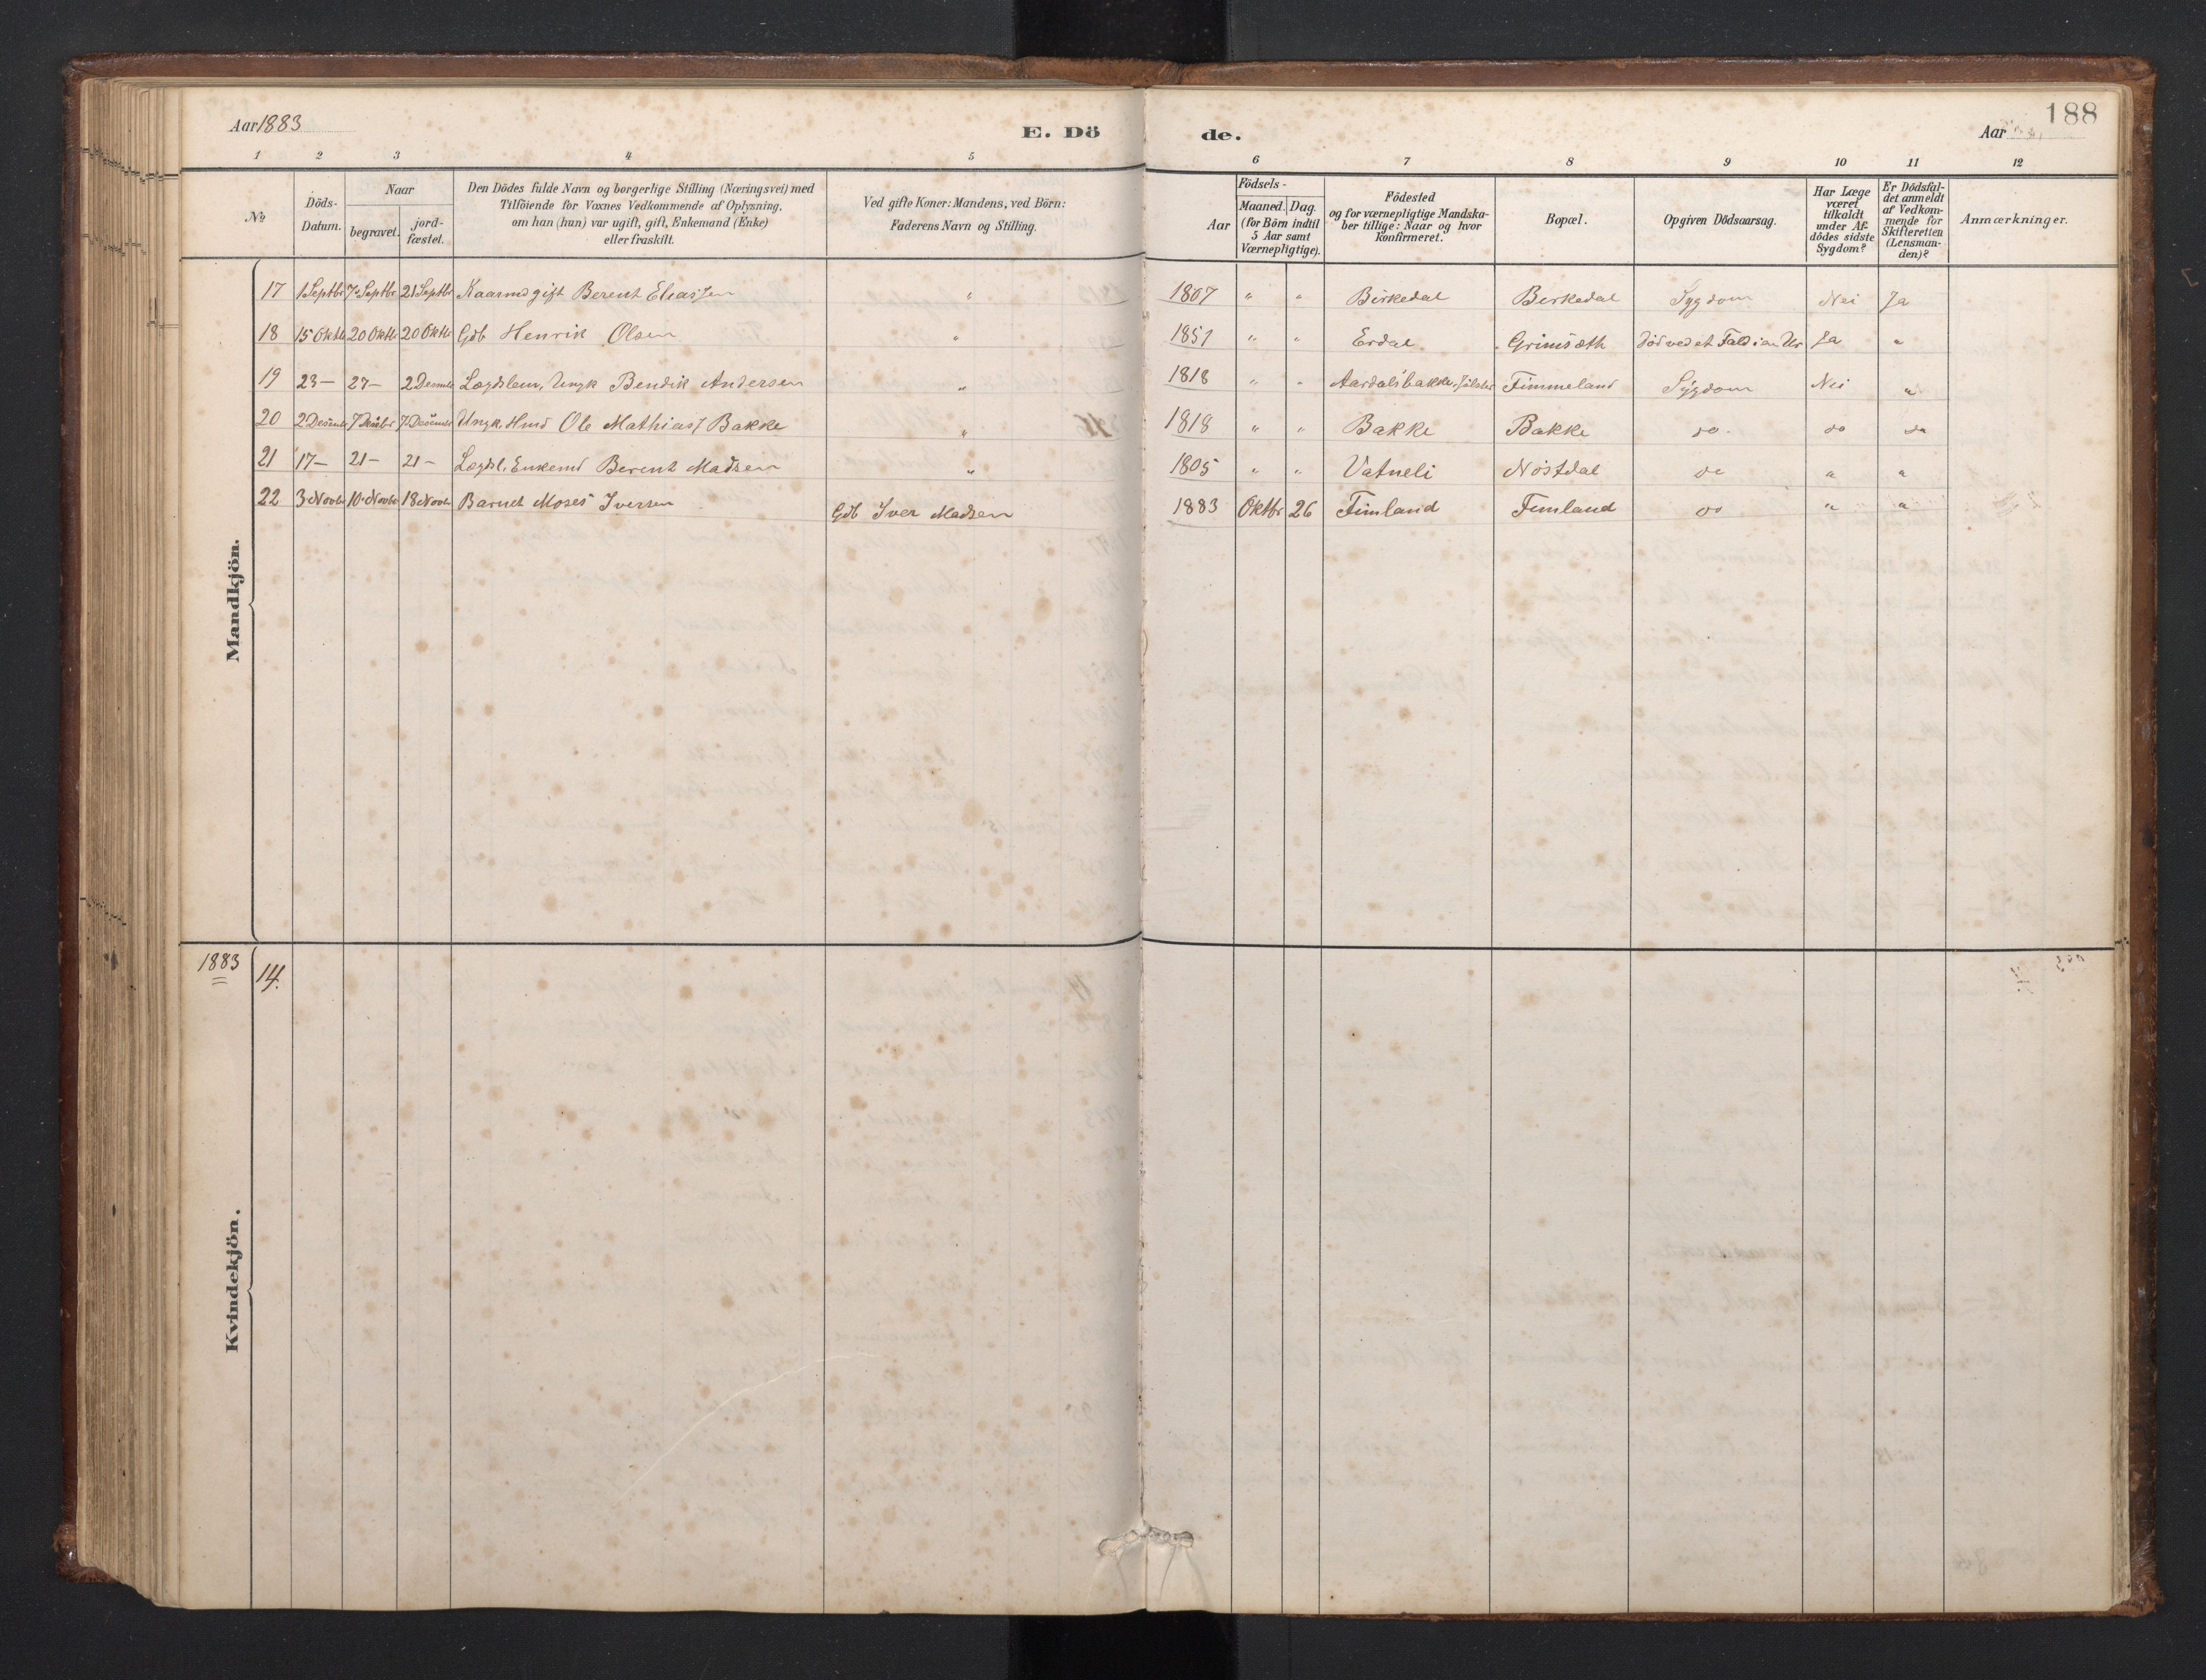 Aar 1883
E. Dö
de.
188
Aar
1 2 3 4 5 6 7 8 9 10 11 12
№
Döds-
Datum.
Naar
begravet.
jord-
fæstet.
Den Dödes fulde Navn og borgerlige Stilling (Næringsvei) med
Tilföiende for Voxnes Vedkommende af Oplysning,
om han (hun) var ugift, gift, Enkemand (Enke)
eller fraskilt.
Ved gifte Koner: Mandens, ved Börn:
Faderens Navn og Stilling.
Födsels-
Aar
Maaned. Dag.
(for Börn indtil
5 Aar samt
Værnepligtige).
Födested
og for værnepligtige Mandska-
ber tillige: Naar og hvor
konfirmeret.
Bopæl.
Opgiven Dödsaarsag.
Har Læge
været
tilkaldt
under Af-
dödes sidste
Sygdom?
Er Dödsfal-
det anmeldt
af Vedkom-
mende for
Skifteretten
(Lensman-
den)?
Anmærkninger.
Mandkjön.
17 1 Septbr 7 Septbr 21 Septbr Kaarmd gift Berent Eliassen " 1807 " " Birkedal Birkedal Sygdom Nei Ja
18 15 Oktb 20 Oktb 20 Oktb Gdb Henrik Olsen " 1851 " " Erdal Grimsæth död ved et Fald i en Ur Ja "
19 23 — 27 — 2 Decmbr Lægdslem, Ungk Bendik Andersen " 1818 " " Aardalsbakke, Jölster Fimmeland Sygdom Nei "
20 2 Decmbr 7 Decmbr 7 Decmbr Ungk. Hmd Ole Mathias Bakke " 1818 " " Bakke Bakke do do do
21 17 — 21 — 21 — Lægdsl. Enkemd Berent Madsen " 1805 " " Vatneli Nöstdal do " "
22 3 Novbr 10 Novbr 18 Novbr Barnet Moses Iversen Gdb Iver Madsen 1883 Oktbr 26 Fimland Fimland do " "
1883
14.
Kvindekjön.